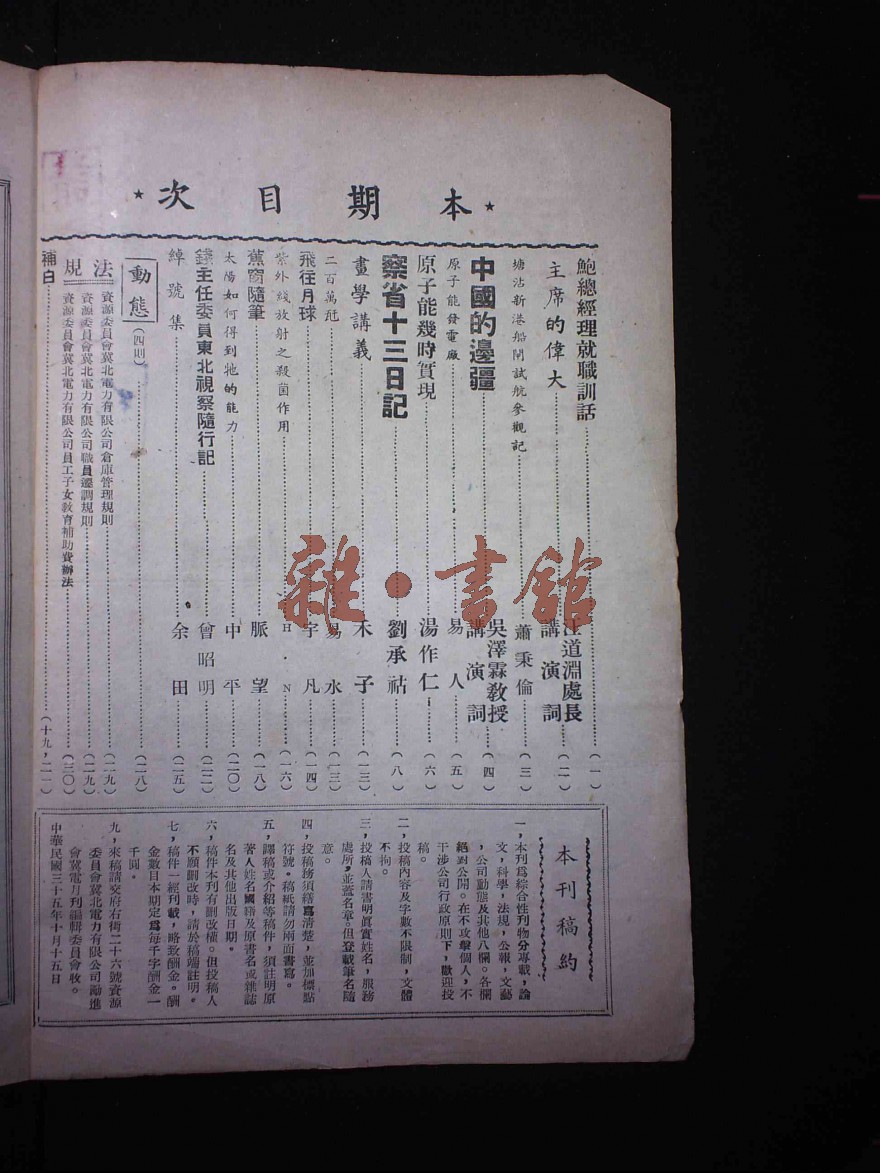 ★本期目次★
鮑總經理就職訓話……(一)
主席的偉大……汪道淵處長講演詞……(二)
塘沽新港船閘試航參觀記……蕭秉倫……(三)
中國的邊疆……吳澤霖教授講演詞……(四)
原子能發電廠……易人……(五)
原子能幾時實現……湯作仁……(六)
察省十三日記……劉承祜……(八)
畫學講義……木子……(一三)
二百萬瓩……易水……(一三)
飛往月球……宇凡……(一四)
紫外綫放射之殺菌作用……H.N……(一六)
蕉窗隨筆……脈望……(一八)
太陽如何得到牠的能力……中平……(二〇)
錢主任委員東北視察隨行記……曾昭明……(二二)
綽號集……余田……(二五)
動態(四則)……(二八)
法規
資源委員會冀北電力有限公司倉庫管理規則……(二九)
資源委員會冀北電力有限公司職員遷調規則……(二九)
資源委員會冀北電力有限公司員工子女敎育補助費辦法……(三〇)
補白……(十九,二一)
本刊稿約
一,本刊爲綜合性刊物分專載,論
文,科學,法規,公報,文藝
,公司動態及其他八欄。各欄
絕對公開。在不攻擊個人,不
干涉公司行政原則下,歡迎投
稿。
二,投稿內容及字數不限制,文體
不拘。
三,投稿人請書明眞實姓名,服務
處所,並蓋名章。但登載筆名隨
意。
四,投稿務須繕寫清楚,並加標點
符號。稿紙請勿兩面書寫。
五,譯稿或介紹等稿件,須註明原
著人姓名國籍及原書名或雜誌
名及其他出版日期。
六,稿件本刊有刪改權。但投稿人
不願刪改時,請於稿端註明。
七,稿件一經刊載,略致酬金。酬
金數目本期定爲每千字酬金一
千圓。
九,來稿請交府右街二十六號資源
委員會冀北電力有限公司勵進
會冀電月刊編輯委員會收。
中華民國三十五年十月十五日
雜·書館